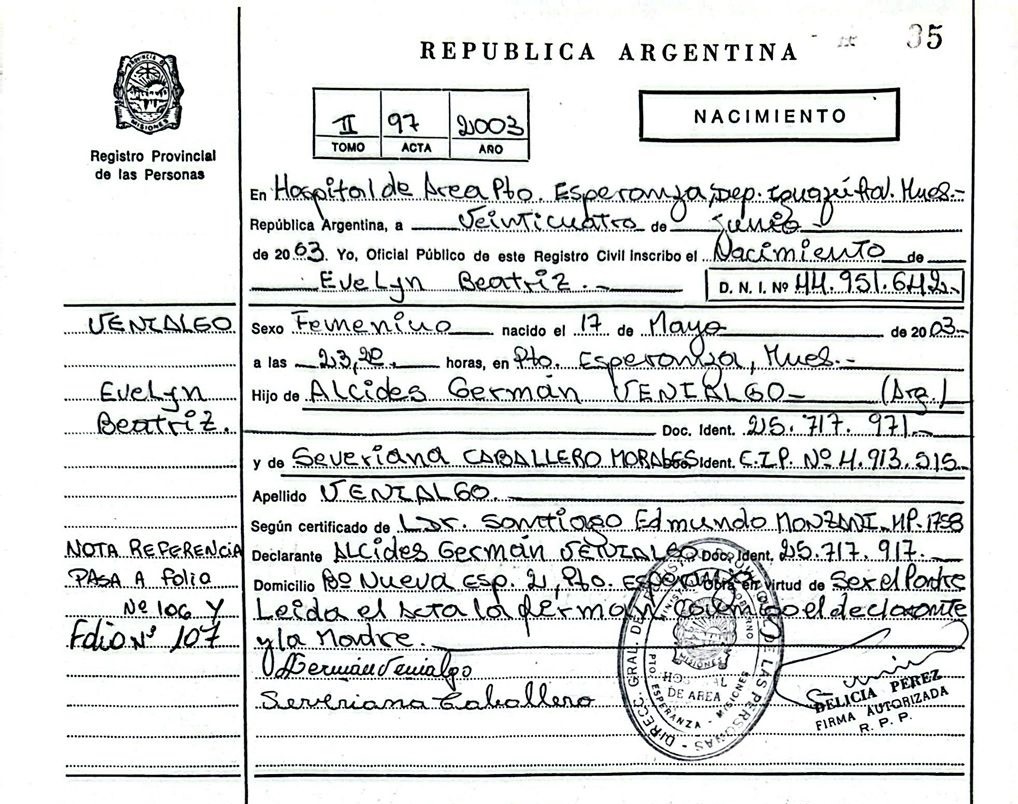 35
REPUBLICA ARGENTINA
MISIONES
Registro Provincial
de las Personas
II 97 2003
TOMO ACTA AÑO
NACIMIENTO
En Hospital de Area Pto. Esperanza, Dep. Iguazú
República Argentina, a Veinticuatro de Junio
de 2003 Yo, Oficial Público de este Registro Civil Inscribo el Nacimiento de
Evelyn Beatriz.- D. N. I. Nº 44.951.642-
VENIALGO
Evelyn
Beatriz.
Sexo Femenino nacido el 17 de Mayo de 2003-
a las 23,20. horas, en Pto. Esperanza, Mnes.-
Hijo de Alcides Germán VENIALGO- (Arg.)
Doc. Ident. 25.717.971-
y de Severiana CABALLERO MORALES Ident. C.I.P. Nº 4.913.515-
Apellido VENIALGO.
Según certificado de Dr. Santiago Edmundo MONZANI-MP.1758
NOTA REFERENCIA
PASA A Folio
Nº 106 Y
Folio Nº 107
Declarante Alcides Germán VENIALGO Doc. Ident. 25.717.917.-
Domicilio Bº Nueva Esp. 2, Pto. Esperanza Obra en virtud de Ser el Padre
Leida el Acta la firman Conmigo el declarante
y la Madre.
Germán Venialgo
Severiana Caballero
DIRECC. GRAL. DE LAS PERSONAS
HOSPITAL
DE AREA
PTO. ESPERANZA - MISIONES
MISIONES
DELICIA PEREZ
FIRMA AUTORIZADA
R. P. P.